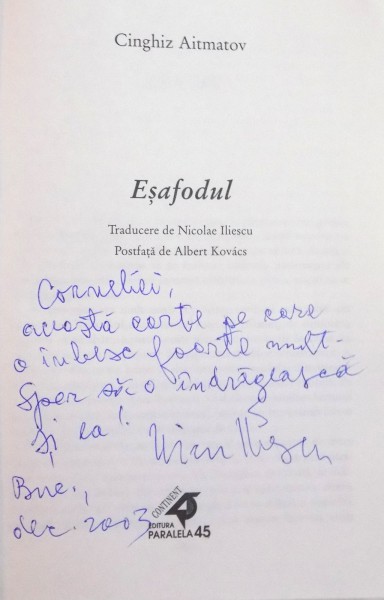 Cinghiz Aitmatov
Eșafodul
Traducere de Nicolae Iliescu
Postfață de Albert Kovács
Corneliei,
această carte pe care
o iubesc foarte mult.
Sper să o îndrăgească
și ea!
Nicu Iliescu
Buc.,
dec. 2003
CONTINENT
45
EDITURA
PARALELA 45